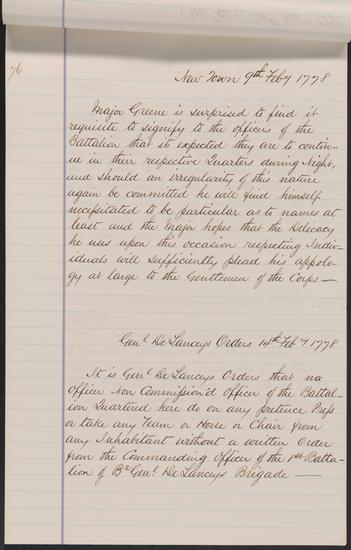 76
New Town 9th Feby 1778
Major Greene is surprised to find it
requisite to signify to the officers of the
Battalion that it expected they are to contin-
ue in their respective Quarters during Night,
and should an irregularity of this nature
again be committed he will find himself
necessitated to be particular as to names at
least and the Major hopes that the Delicacy
he uses upon this occasion respecting Indiv-
iduals will sufficiently plead his appolo-
gy at large to the Gentlemen of the Corps —
Genl De Lanceys Orders 14th Feby 1778
It is Genl De Lanceys Orders that no
officer Non Commission'd officer of the Battal-
ion Quartered here do on any pretence Press
or take any Team or Horse or Chair from
any Inhabitant without a written Order
from the Commanding Officer of the 1st Batta-
lion of Br Genl De Lanceys Brigade —